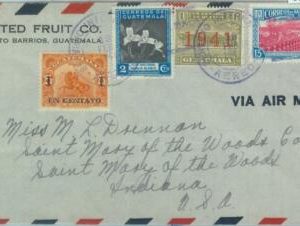 TED FRUIT CO.
TO BARRIOS, GUATEMALA.
CORREOS DE GUATEMALA
2 C
1941
GUATEMALA
CORREOS
15
1 1
UN CENTAVO
VIA AIR M
Miss M L Drennan
Saint Mary of the Woods Co
Saint Mary of the Woods
Indiana
U.S.A